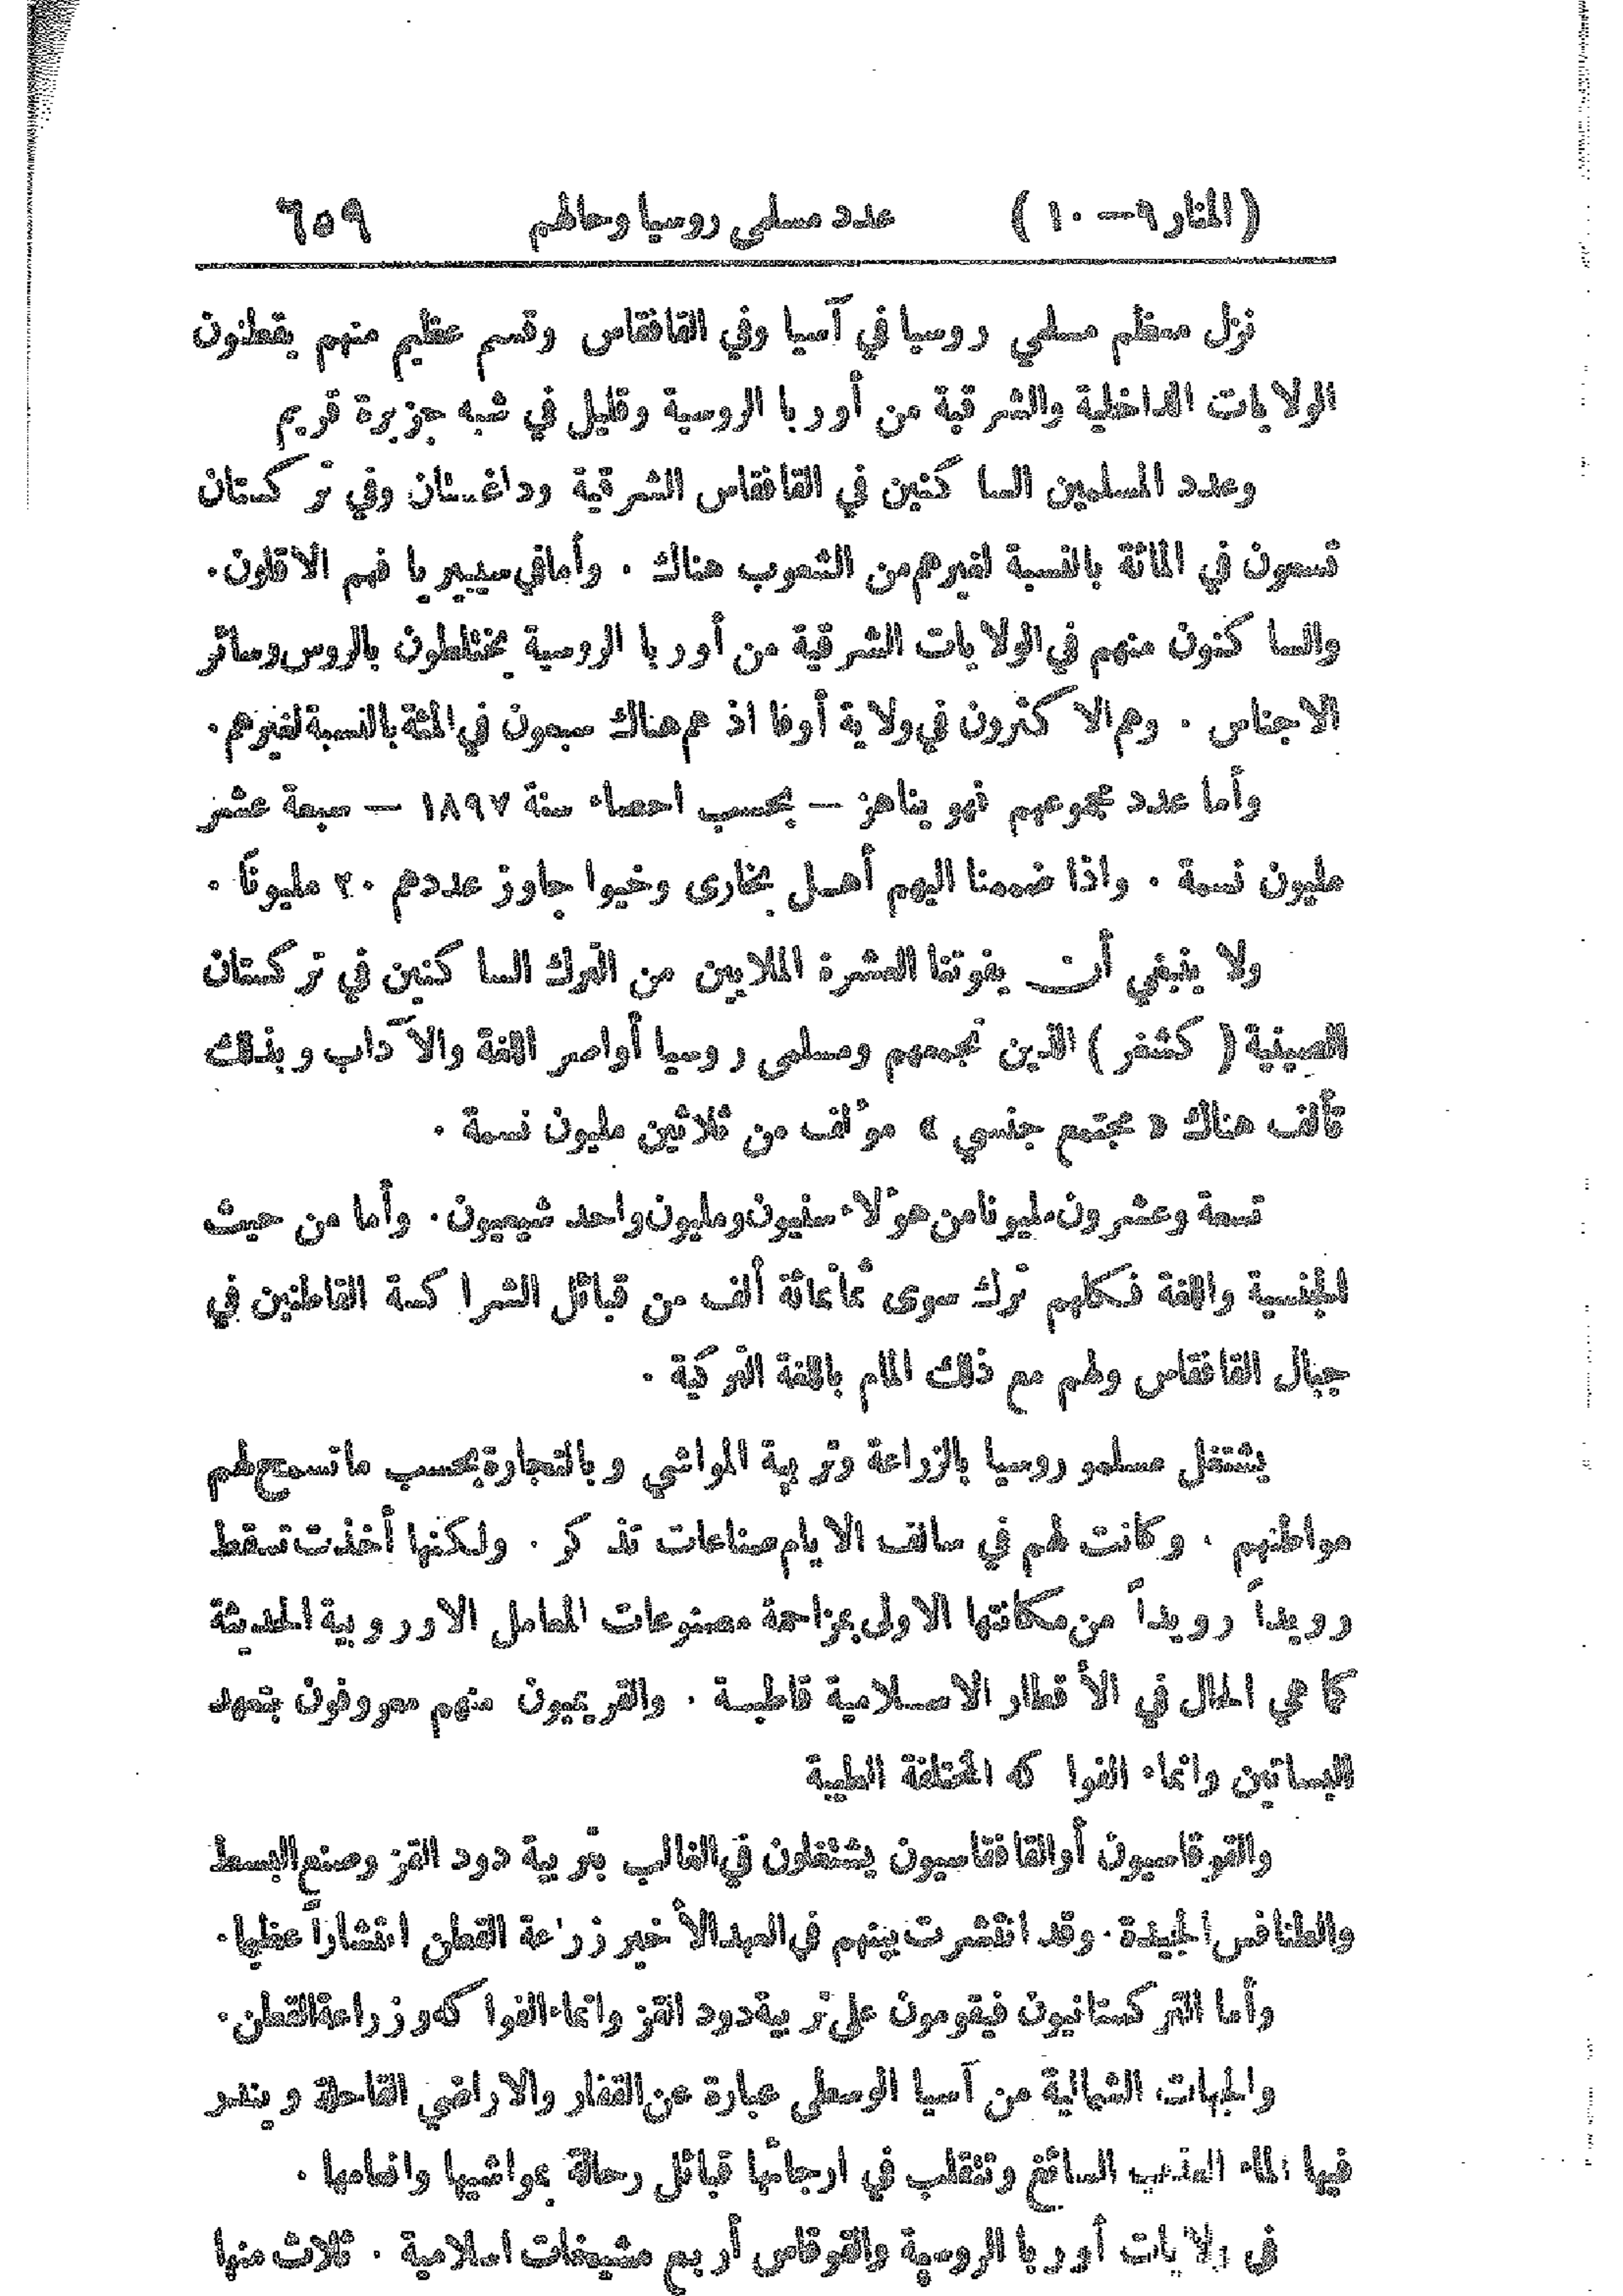 (المنار ٩—١٠) عدد مسلمي روسيا وحالهم ٦٥٩
نزل معظم مسلمي روسيا في آسيا وفي القافقاس وقسم عظيم منهم يقطنون
الولايات الداخلية والشرقية من أوربا الروسية وقليل في شبه جزيرة قريم
وعدد المسلمين الساكنين في القافقاس الشرقية وداغستان وفي تركستان
تسعون في المائة بالنسبة لغيرهم من الشعوب هناك . وأما في سيبيريا فهم الاقلون .
والساكنون منهم في الولايات الشرقية من أوربا الروسية يختلطون بالروس وسائر
الاجناس . وهم الاكثرون في ولاية أوفا اذ هم هناك سبعون في المئة بالنسبة لغيرهم .
وأما عدد مجموعهم فهو يناهز — بحسب احصاء سنة ١٨٩٧ — سبعة عشر
مليون نسمة . واذا ضممنا اليهم أهل بخارى وخيوا جاوز عددهم ٢٠ مليونًا .
ولا ينبغي أن يفوتنا العشرة الملايين من الترك الساكنين في تركستان
الصينية (كشغر) الذين تجمعهم ومسلمي روسيا أواصر اللغة والآداب وبذلك
تألف هناك « مجتمع جنسي » مؤلف من ثلاثين مليون نسمة .
تسعة وعشرون مليونا من هؤلاء سنيون ومليون واحد شيعيون . وأما من حيث
الجنسية واللغة فكلهم ترك سوى ثمانمائة ألف من قبائل الشراكسة القاطنين في
جبال القافقاس ولهم مع ذلك المام باللغة التركية .
يشتغل مسلمو روسيا بالزراعة وتربية المواشي وبالتجارة بحسب ما تسمح لهم
مواطنهم . وكانت لهم في سالف الايام صناعات تذكر . ولكنها أخذت تسقط
رويداً رويداً من مكانتها الاولى بمزاحمة مصنوعات المعامل الاوروبية الحديثة
كما هي الحال في الأقطار الاسلامية قاطبة . والقريميون منهم معروفون بتعهد
البساتين وانماء الفواكه المختلفة الطيبة
والقوقاسيون أو القافقاسيون يشتغلون في الغالب بتربية دود القز وصنع البسط
والطنافس الجيدة . وقد انتشرت بينهم في العهد الأخير زراعة القطن انتشاراً عظيما .
وأما التركستانيون فيقومون على تربية دود القز وانماء الفواكه وزراعة القطن .
والجهات الشمالية من آسيا الوسطى عبارة عن القفار والاراضي القاحلة ويندر
فيها الماء العذب السائغ وتتقلب في ارجائها قبائل رحالة بمواشيها وانعامها .
في ولايات أوربا الروسية والقوقاس أربع مشيخات اسلامية . ثلاث منها